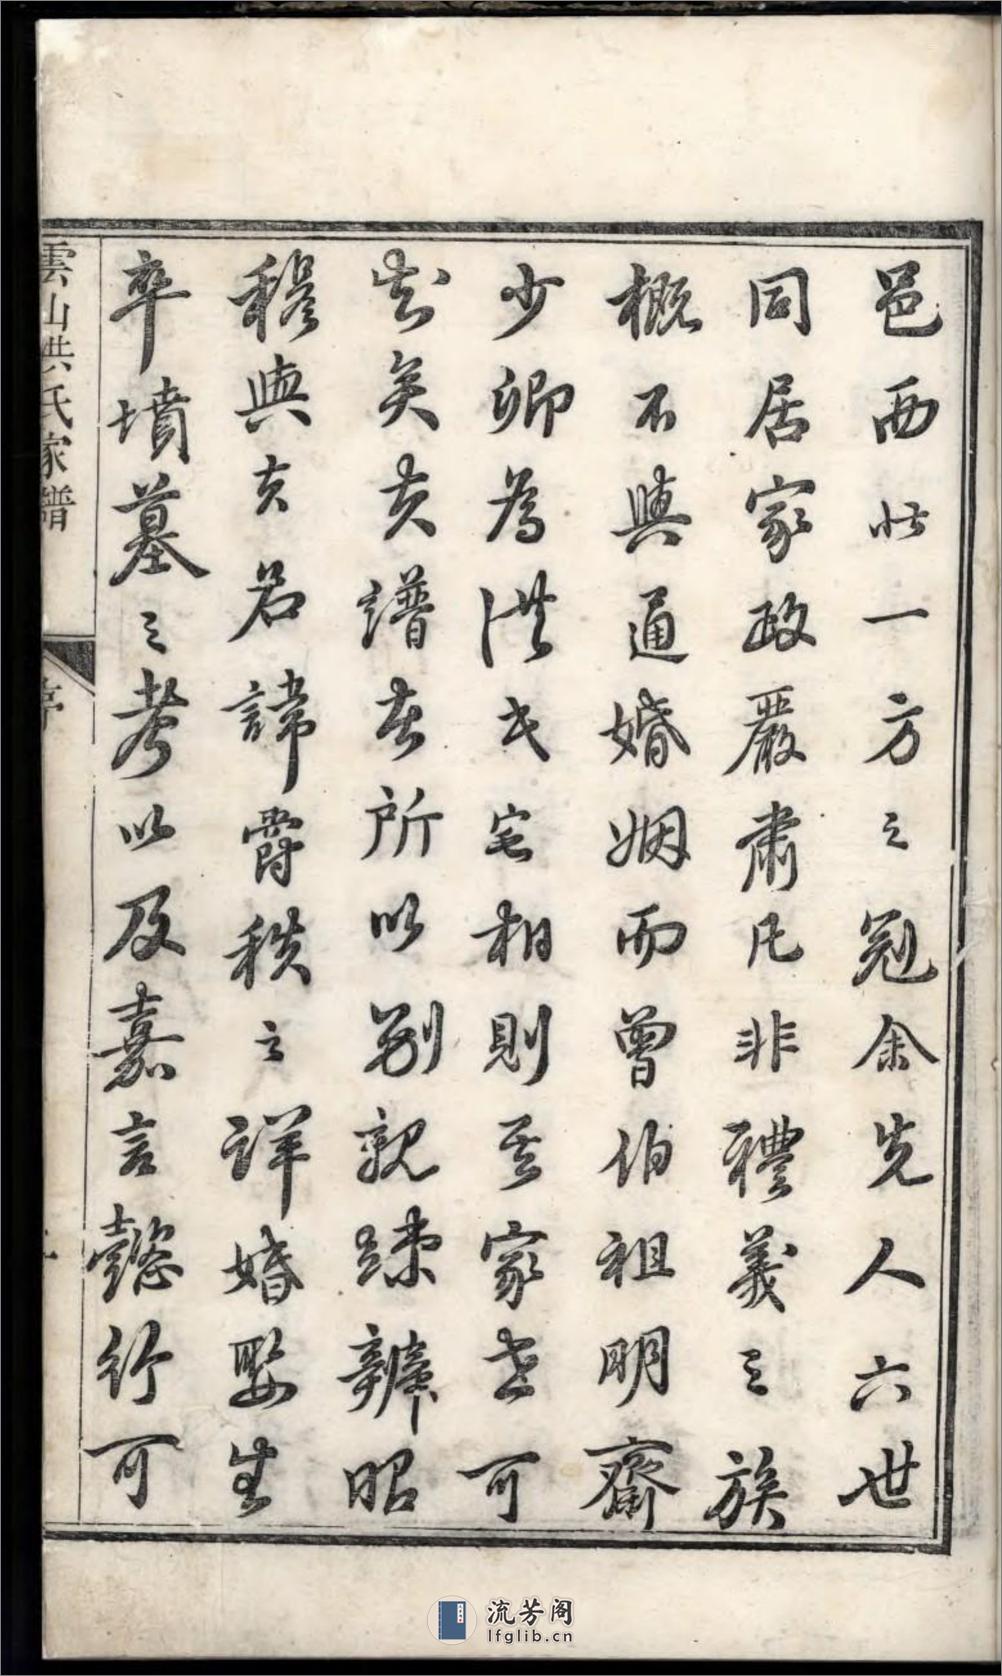 邑西北一方之冠余先人六世
同居家政嚴肅凡非禮義之族
概不與通婚姻而曾伯祖明齋
少卿為洪氏宅相則其家世可
知矣夫譜者所以別親疎辨昭
穆與夫名諱爵秩之詳婚娶生
卒墳墓之考以及嘉言懿行可
雲山洪氏家譜
序
流芳阁
lfglib.cn